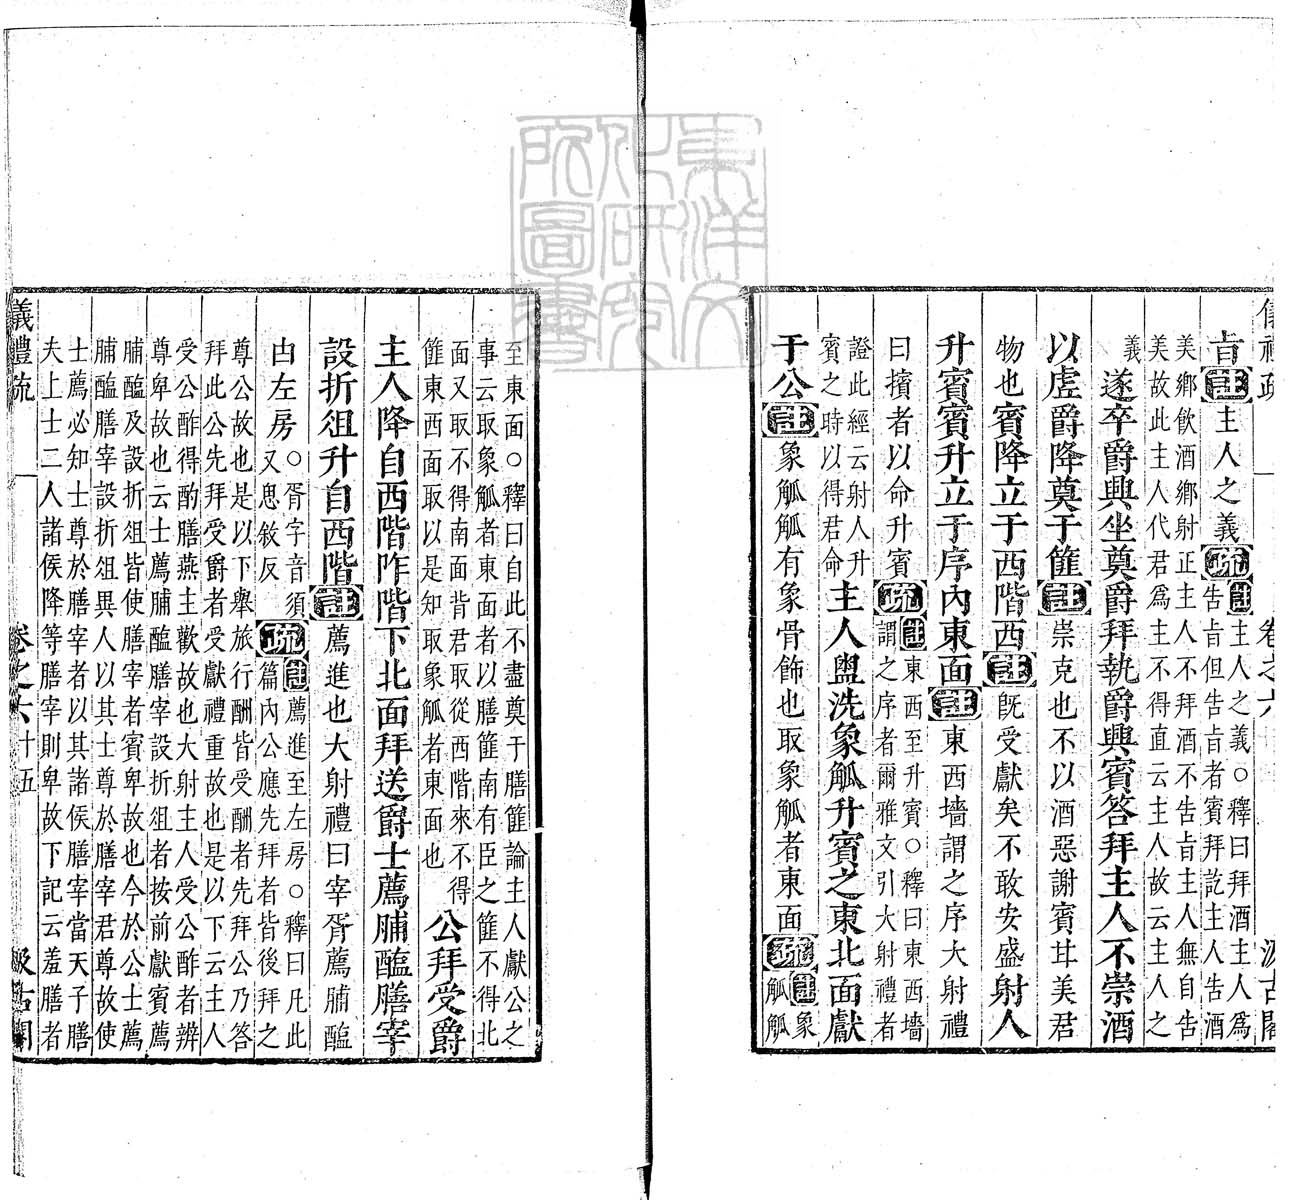 儀禮疏 卷之六 汲古閣
旨註主人之義疏
註主人之義○釋曰拜酒主人爲
告旨但告旨者賓拜訖主人告酒
美鄉飲酒鄉射正主人不拜酒不告旨主人無自告
美故此主人代君爲主不得直云主人故云主人之
義 遂卒爵興坐奠爵拜執爵興賓答拜主人不崇酒
以虛爵降奠于篚註崇克也不以酒惡謝賓甘美君
物也賓降立于西階西註既受獻矣不敢安盛射人
升賓賓升立于序內東面註東西墻謂之序大射禮
曰擯者以命升賓疏
註東西至升賓○釋曰東西墻
謂之序者爾雅文引大射禮者
證此經云射人升
賓之時以得君命
主人盥洗象觚升賓之東北面獻
于公註象觚觚有象骨飾也取象觚者東面疏
註象
觚觚
至東面○釋曰自此不盡奠于膳篚論主人獻公之
事云取象觚者東面者以膳篚南有臣之篚不得北
面又取不得南面背君取從西階來不得
篚東西面取以是知取象觚者東面也
公拜受爵
主人降自西階阼階下北面拜送爵士薦脯醢膳宰
設折俎升自西階註薦進也大射禮曰宰胥薦脯醢
由左房
○胥字音須
又思敘反
疏
註薦進至左房○釋曰凡此
篇內公應先拜者皆後拜之
尊公故也是以下舉旅行酬皆受酬者先拜公乃答
拜此公先拜受爵者受獻禮重故也是以下云主人
受公酢得酌膳燕主歡故也大射主人受公酢者辨
尊卑故也云士薦脯醢膳宰設折俎者按前獻賓薦
脯醢及設折俎皆使膳宰者賓卑故也今於公士薦
脯醢膳宰設折俎異人以其士尊於膳宰君尊故使
士薦必知士尊於膳宰者以其諸侯膳宰當天子膳
夫上士二人諸侯降等膳宰則卑故下記云羞膳者
儀禮疏 卷之六 十五 汲古閣
東洋文
化研究
所圖書